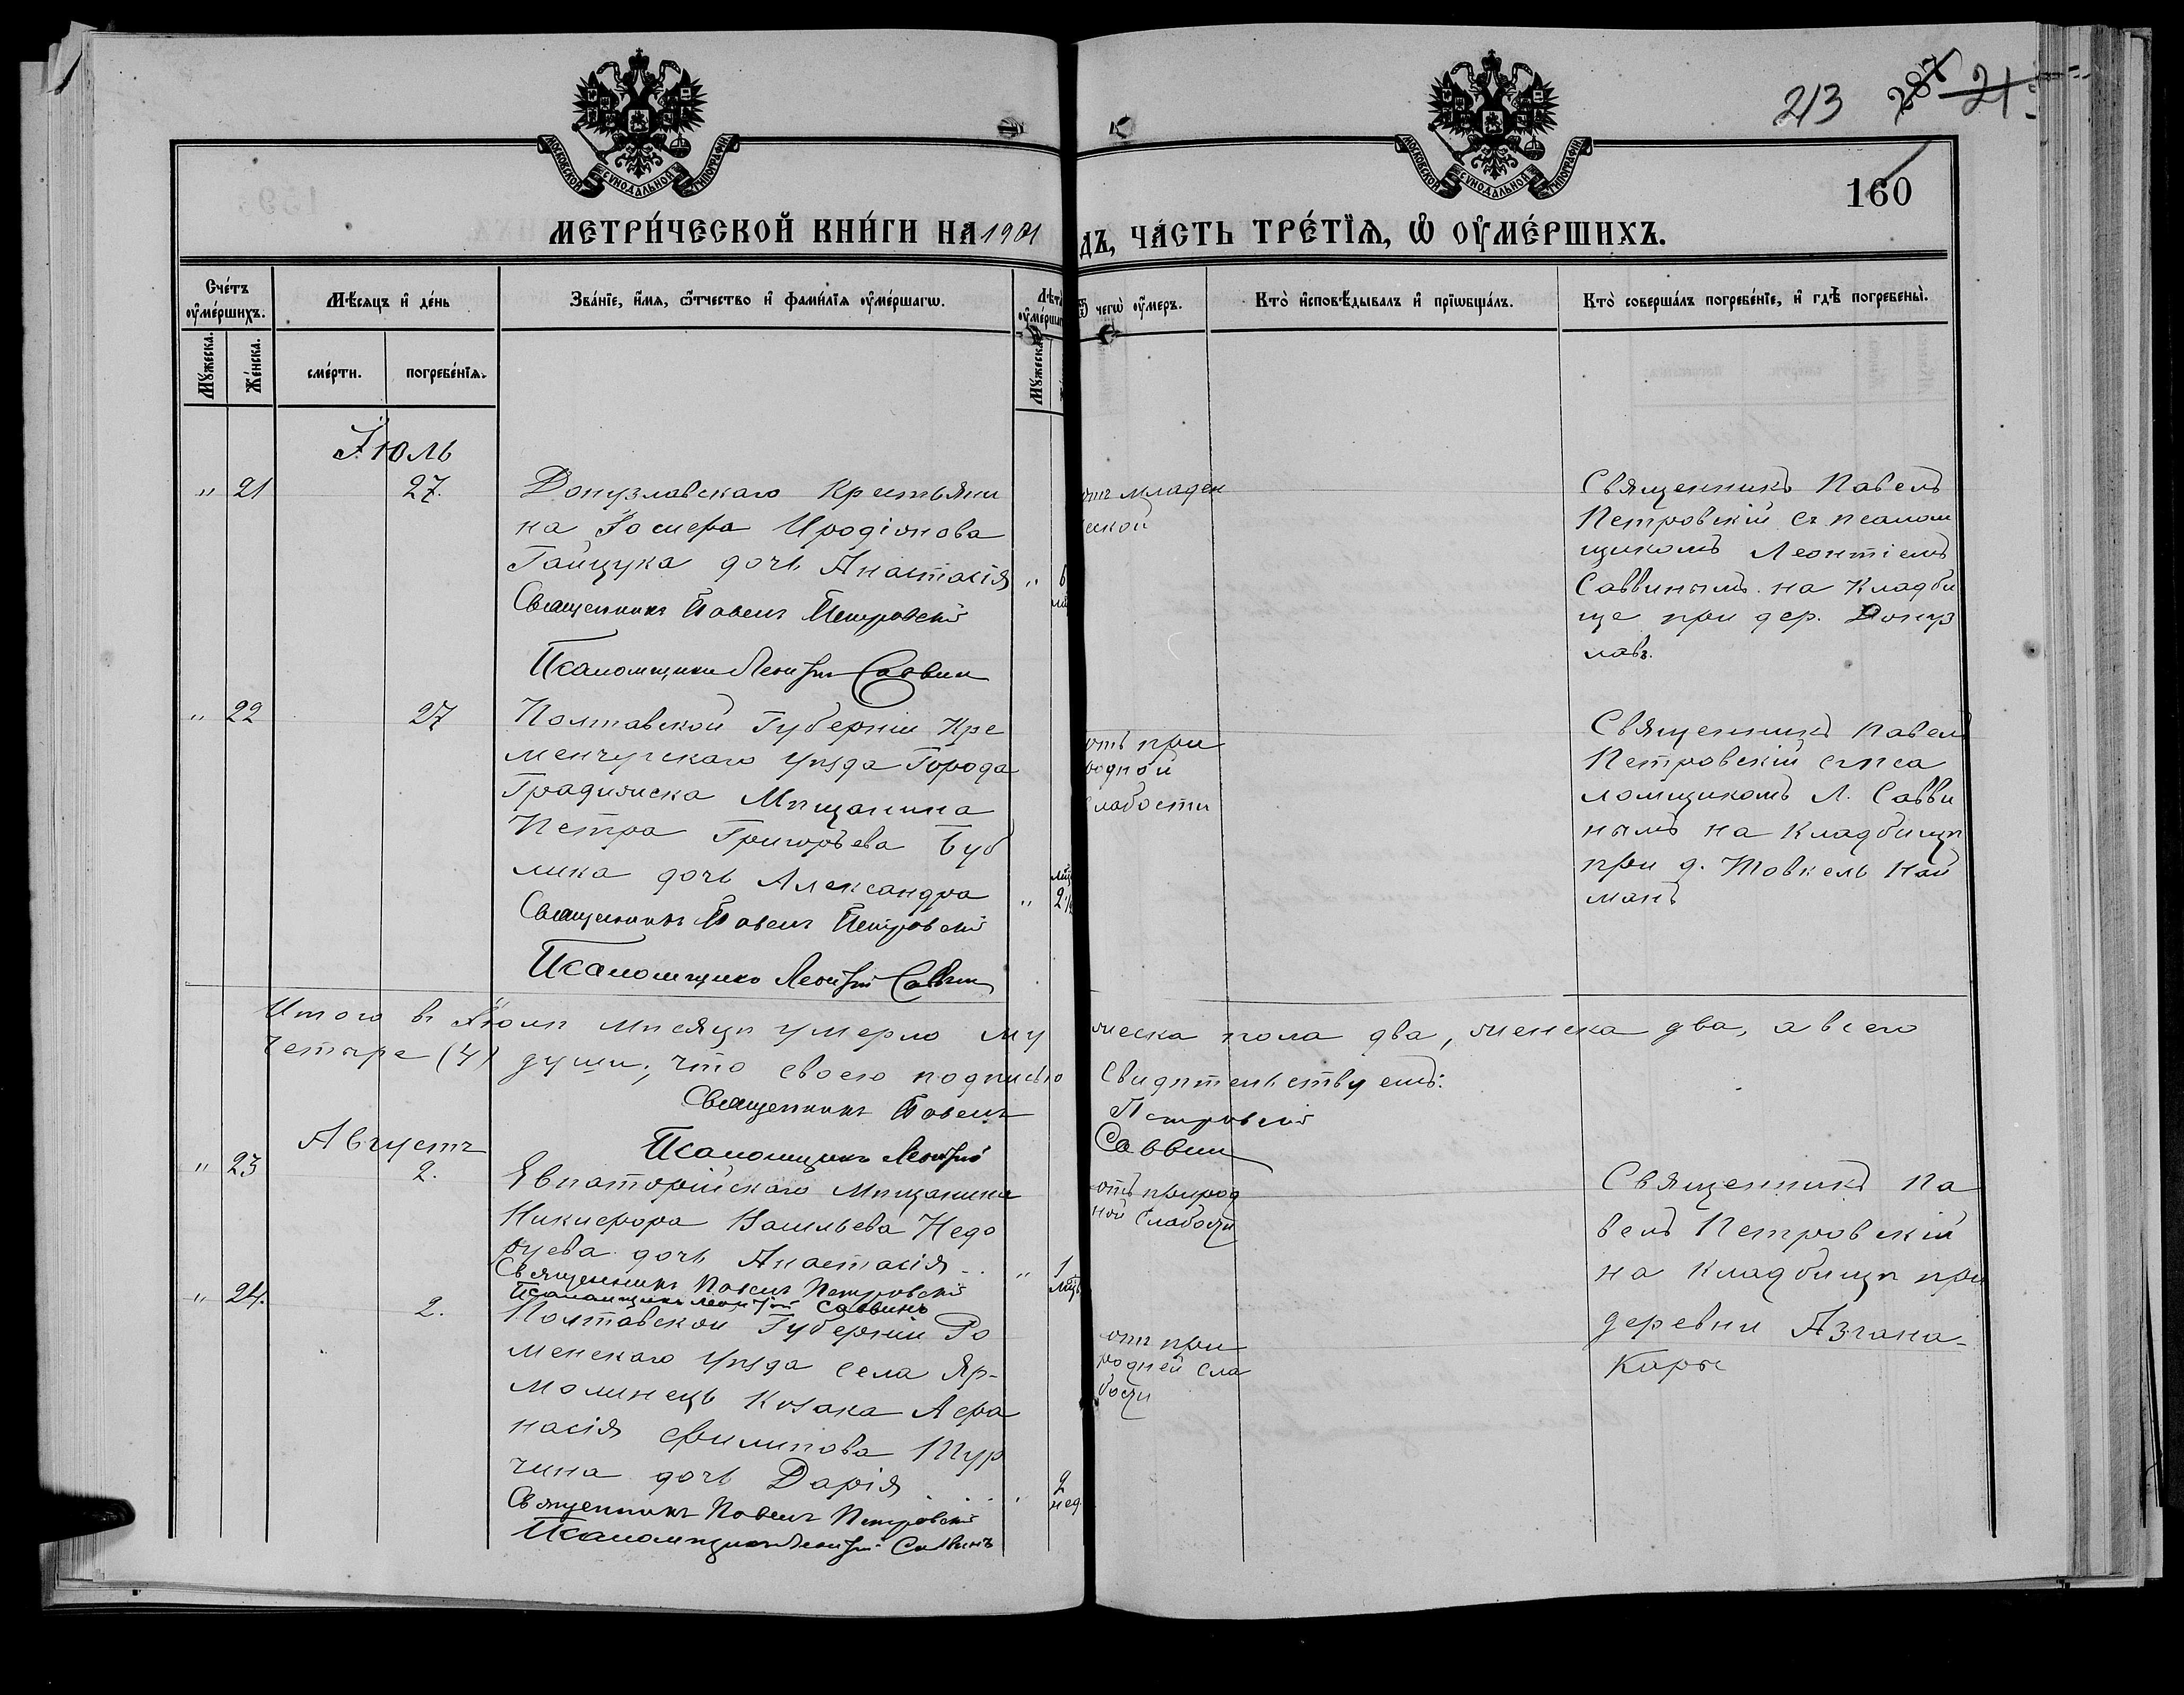 213 287 21
160
МОСКОВСКОЙ СѴНОДАЛЬНОЙ ТИПОГРАФІИ
МОСКОВСКОЙ СѴНОДАЛЬНОЙ ТИПОГРАФІИ
МЕТРИ́ЧЕСКОЙ КНИ́ГИ НА 1901
ДЪ, ЧА́СТЬ ТРЕ́ТЇѦ, Ѡ҆ ОУ҆МЕ́РШИХЪ.
Сче́тъ оу҆ме́ршихъ.
Мѣ́сяцъ и҆ де́нь
Зва́нїе, и҆́мя, ѻ҆́тчество и҆ фами́лїя оу҆ме́ршагѡ.
Лѣта̀ оу҆ме́ршаг
Ѿ чегѡ̀ оу҆́меръ.
Кто̀ и҆сповѣ́дывалъ и҆ прїѡбща́лъ.
Кто̀ соверша́лъ погребе́нїе, и҆ гдѣ̀ погребены̀.
Мꙋ́жеска.
Же́нска.
сме́рти.
погребе́нїя.
Мꙋ́жеска
Іюль
" 21 27. Донузлавскаго Крестьяни
на Іосифа Иродіонова
Гайцука дочь Анастасія " 6
Священникъ Павелъ Петровскій
Псаломщикъ Леонтій Саввин
отъ младен
ской
Священникъ Павелъ
Петровскій съ псалом
щикомъ Леонтіемъ
Саввинымъ на Кладби
ще при дер. Донуз
лавъ.
" 22 27 Полтавской Губерніи Кре
менчугскаго уѣзда Города
Градижска Мѣщанина
Петра Григорьева Буб
лика дочь Александра " 2½
Священникъ Павелъ Петровскій
Псаломщикъ Леонтій Саввин
отъ при
родной
слабости
Священникъ Павелъ
Петровскій съ пса
ломщикомъ Л. Савви
нымъ на Кладбищѣ
при д. Товкель Най
манъ
Итого въ Іюлѣ мѣсяцѣ умерло му
жеска пола два, женска два, а всего
четыре (4) души, что своею подписью
свидѣтельствуемъ:
Священникъ Павелъ
Петровскій
Псаломщикъ Леонтій
Саввин
Августъ
" 23 2. Евпаторійскаго Мѣщанина
Никифора Васильева Недо
дочь Анастасія " 1
Священникъ Павелъ Петровскій мѣц
Псаломщикъ Леонтій Саввинъ
отъ природ
ной слабости
Священникъ Па
велъ Петровскій
на Кладбищѣ при
деревни Азгана-
Кары
" 24. 2. Полтавской Губерніи Ро
менскаго уѣзда села Яр-
молинецъ Козака Афа
насія Филипова Тур
чина дочь Дарія " 2
Священникъ Павелъ Петровскій нед.
Псаломщикъ Леонтій Саввинъ
отъ при
родней сла
бости